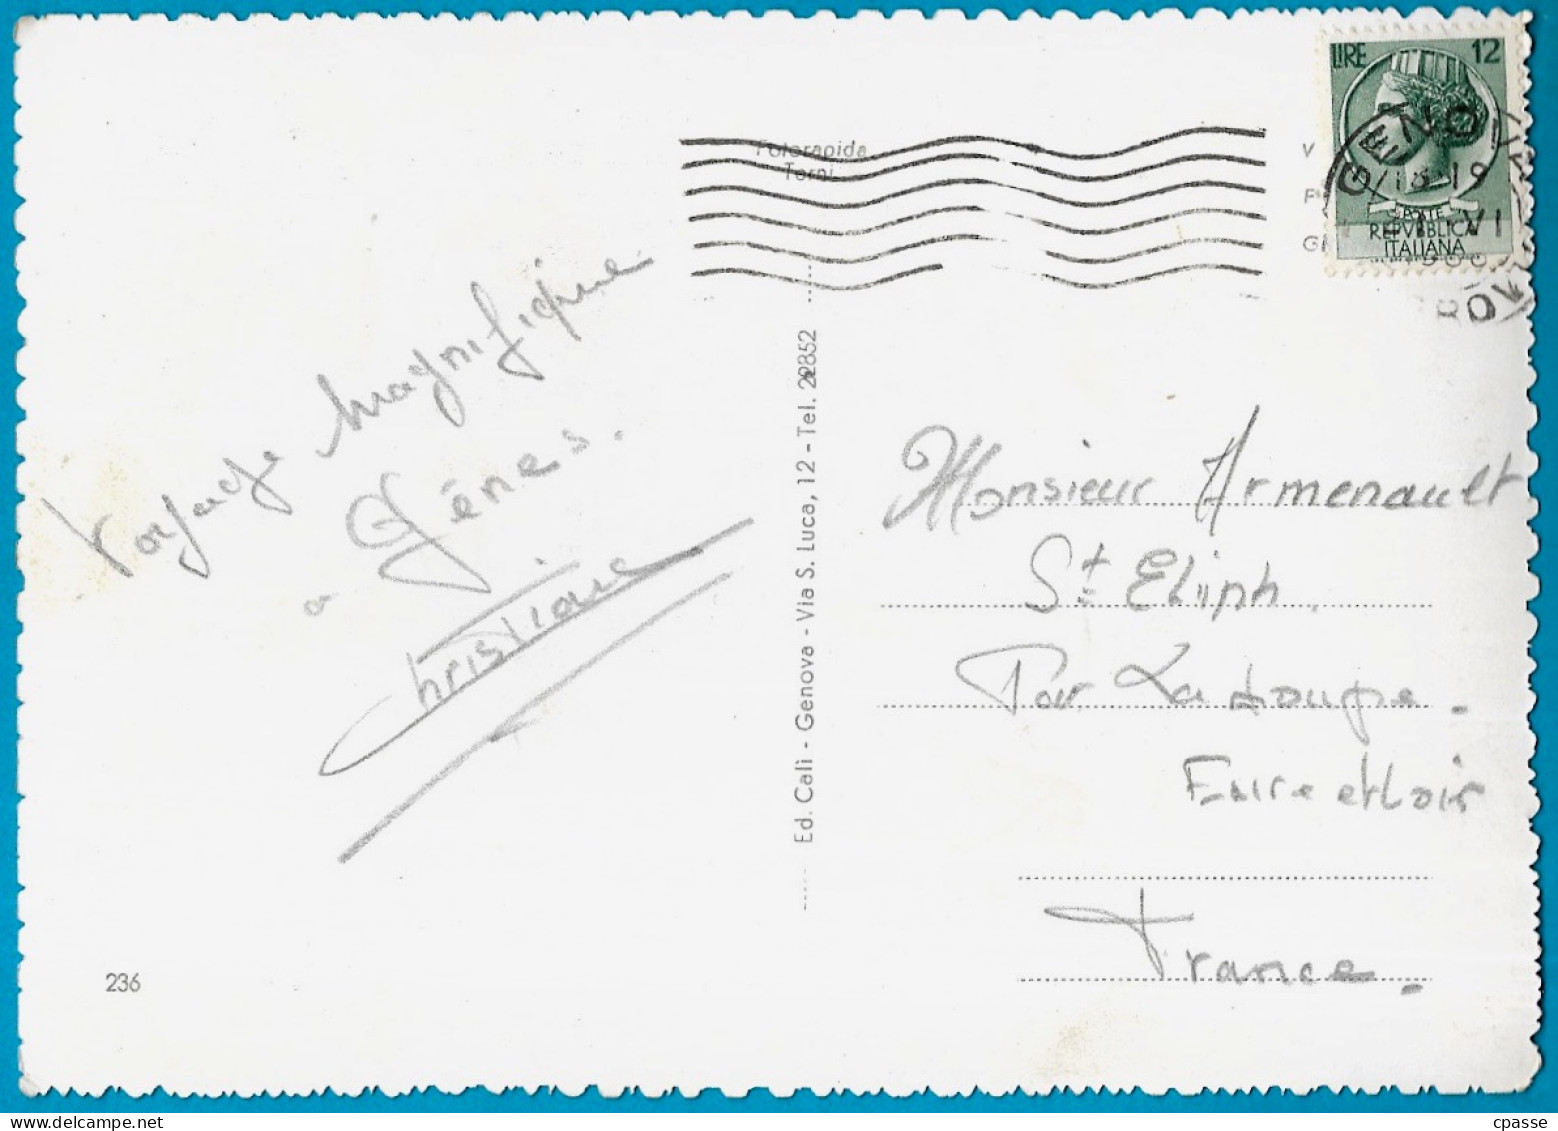 Voyage magnifique
a Gênes.
Christiane
236
Fotorapida
Terni
Ed. Cali - Genova - Via S. Luca, 12 - Tel. 22852
LIRE 12
POSTE
REPVBBLICA
ITALIANA
GENOVA
18-19
VI
Monsieur Armenault
St Eliph.
Par La Loupe.
Eure et Loir
France.
cpasse